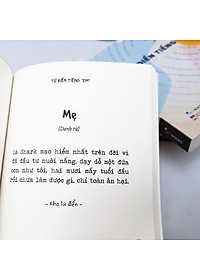 TỪ ĐIỂN TIẾNG "EM"
Mẹ
[Danh từ]
là shark mạo hiểm nhất trên đời vì
đã đầu tư nuôi nấng, dạy dỗ một đứa
con như tôi, hai mươi mấy tuổi đầu
rồi chưa làm được gì, chỉ toàn ăn hại.
- khotudien -